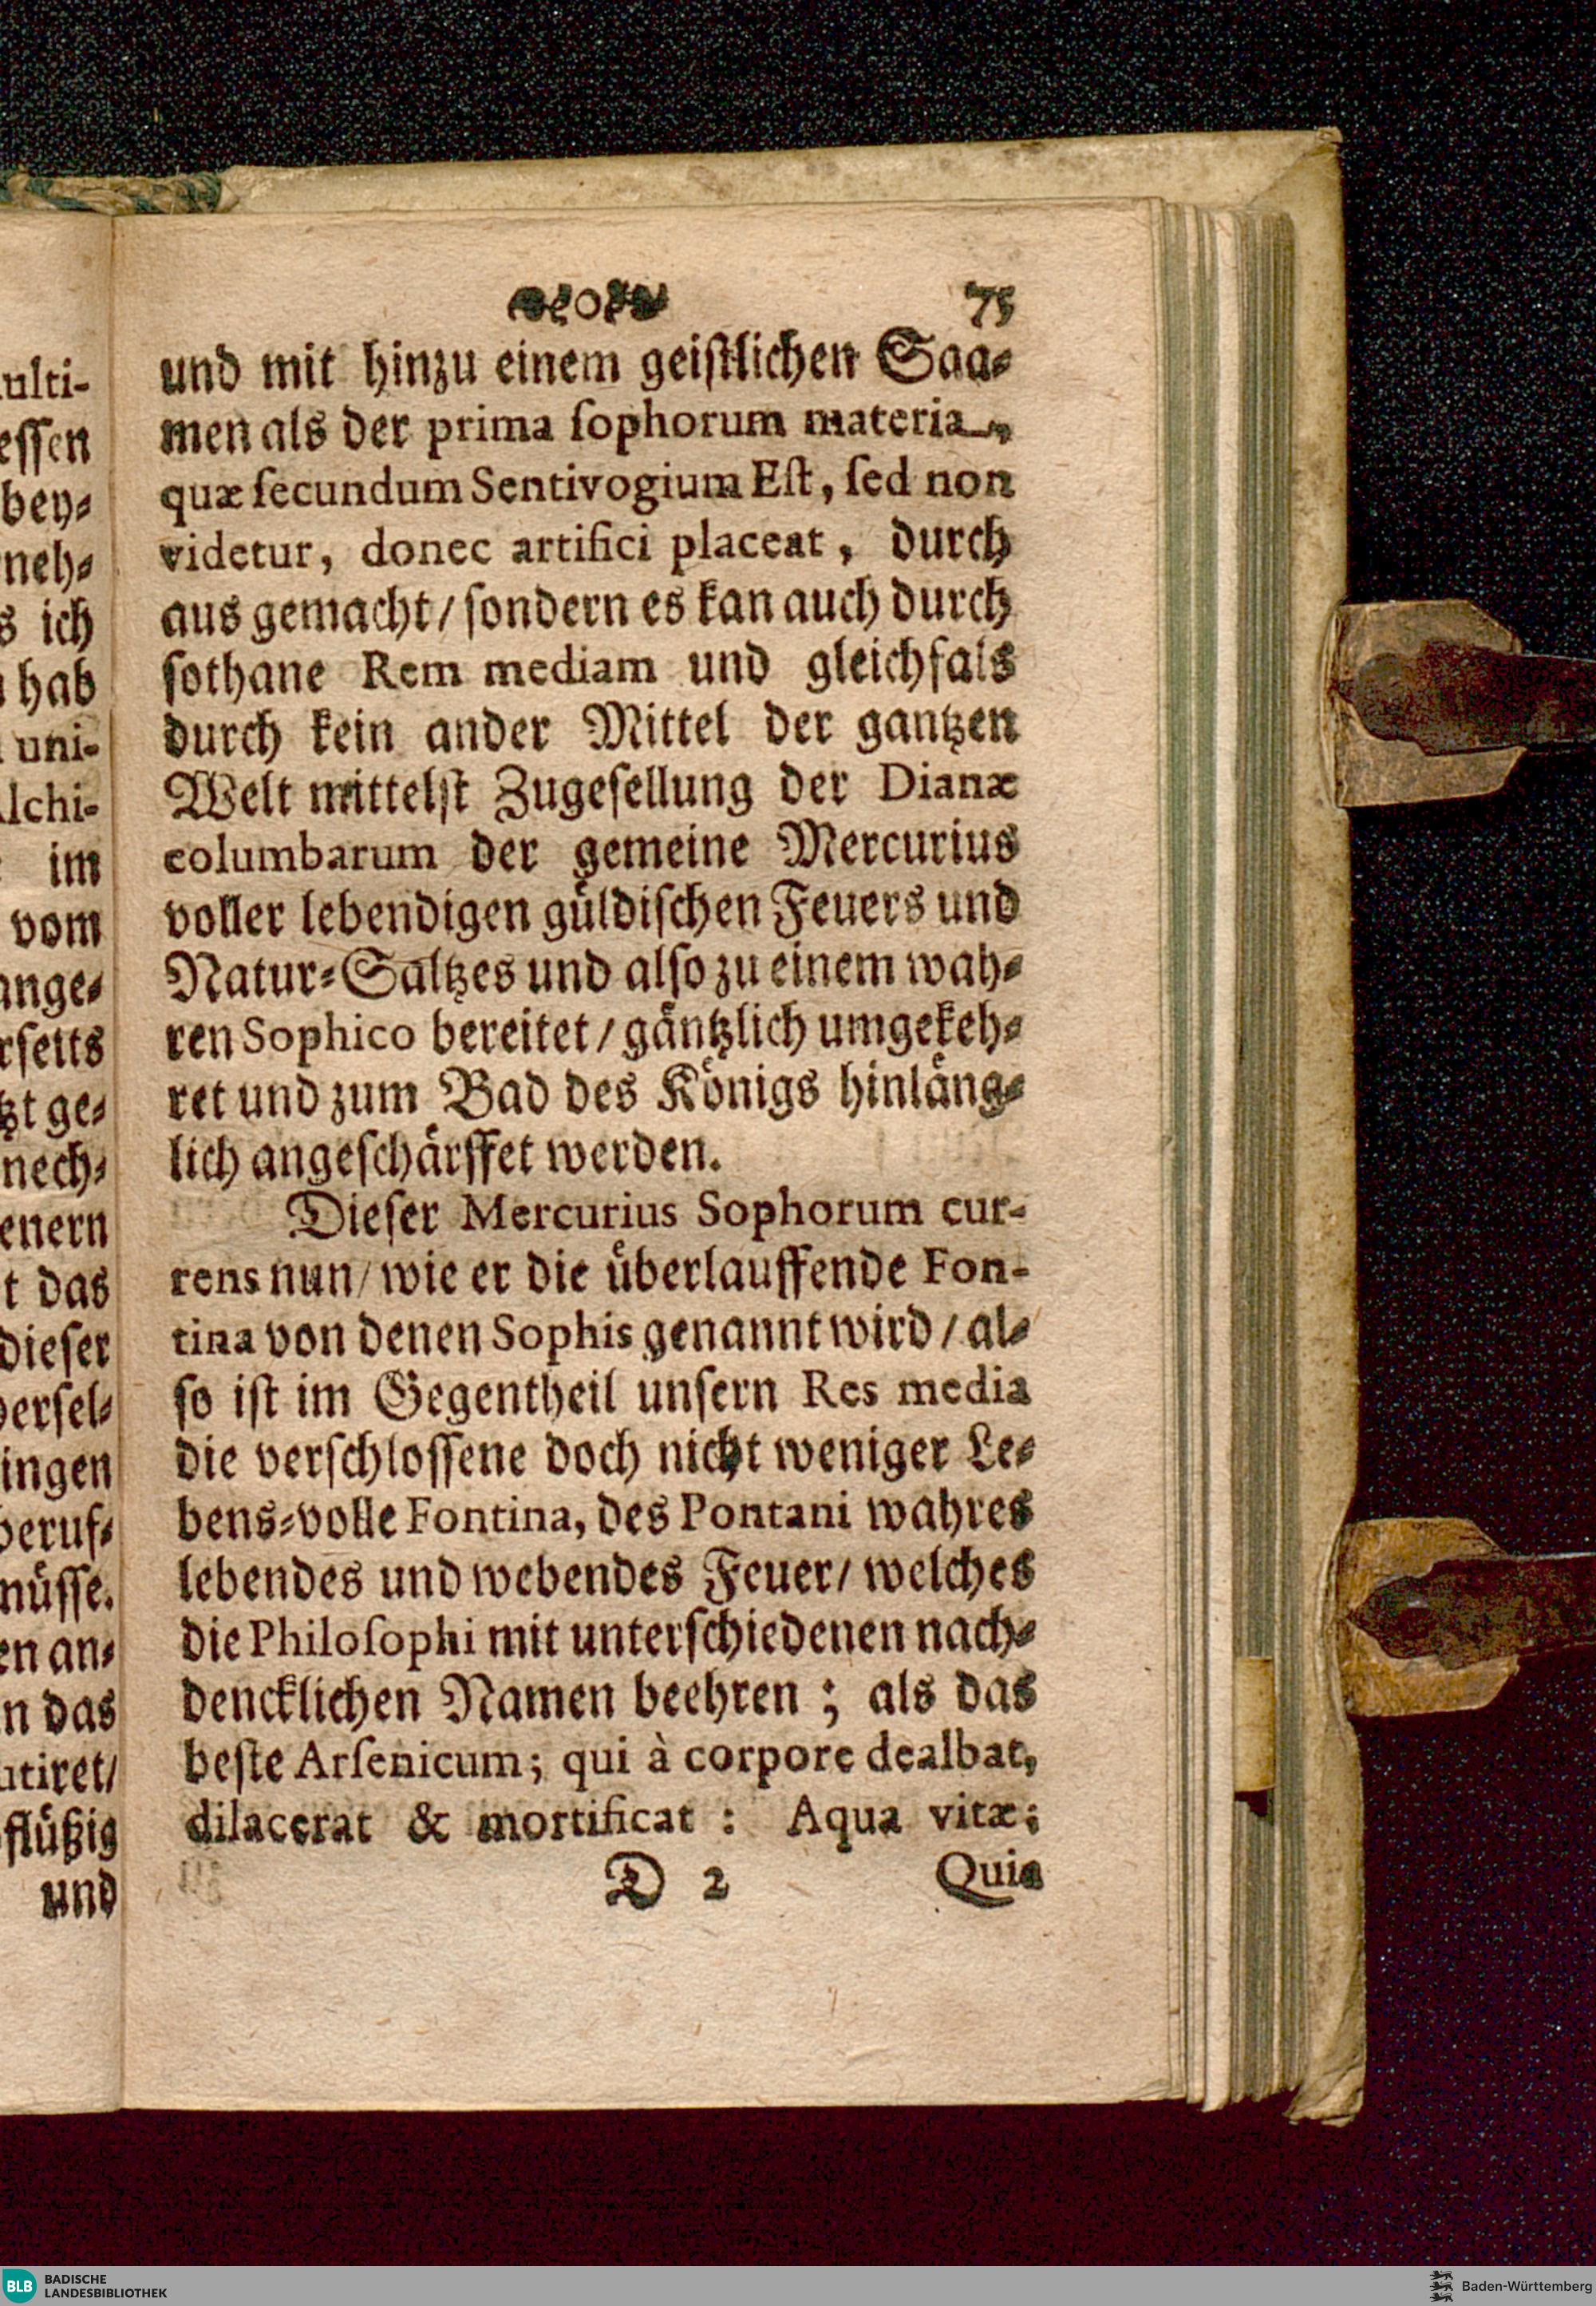 75
und mit hinzu einem geistlichen Saa⸗
men als der prima sophorum materia,
quæ secundum Sentivogium Est, sed non
videtur, donec artifici placeat, durch
aus gemacht/ sondern es kan auch durch
sothane Rem mediam und gleichfals
durch kein ander Mittel der gantzen
Welt mittelst Zugesellung der Dianæ
columbarum der gemeine Mercurius
voller lebendigen güldischen Feuers und
Natur⸗Saltzes und also zu einem wah⸗
ren Sophico bereitet/ gäntzlich umgekeh⸗
ret und zum Bad des Königs hinläng⸗
lich angeschärffet werden.
Dieser Mercurius Sophorum cur-
rens nun/ wie er die überlauffende Fon-
tina von denen Sophis genannt wird/ al⸗
so ist im Gegentheil unsern Res media
die verschlossene doch nicht weniger Le⸗
bens⸗volle Fontina, des Pontani wahres
lebendes und webendes Feuer/ welches
die Philosophi mit unterschiedenen nach⸗
dencklichen Namen beehren; als das
beste Arsenicum; qui à corpore dealbat,
dilacerat & mortificat: Aqua vitæ;
D 2 Quia
ulti-
essen
bey⸗
neh⸗
s ich
hab
uni-
lchi-
im
vom
ange⸗
rseits
tzt ge⸗
nech⸗
enern
t das
dieser
versel⸗
ingen
beruf⸗
müsse.
en an⸗
n das
utiret/
flüßig
und
BLB BADISCHE
LANDESBIBLIOTHEK
Baden-Württemberg